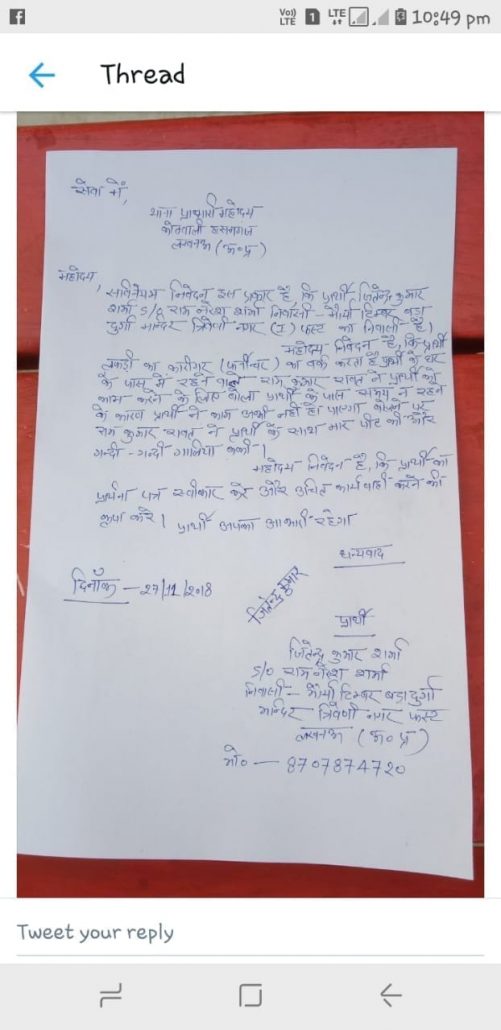 VoJ LTE 1 LTE 10:49 pm
Thread
सेवा में,
थाना प्रभारी महोदय
कोतवाली हसनगंज
लखनऊ (उ०प्र)
महोदय,
सविनय निवेदन इस प्रकार है, कि प्रार्थी जितेन्द्र कुमार
शर्मा S/o राम नरेश शर्मा निवासी - मौर्या टिम्बर बड़ा
दुर्गा मन्दिर त्रिवेणी नगर फस्ट का निवासी है।
महोदय निवेदन है, कि प्रार्थी
लकड़ी का कारीगर (फर्नीचर) का वर्क करता है प्रार्थी के घर
के पास में रहने वाले राम कुमार रावत ने प्रार्थी को
काम करने के लिए बोला प्रार्थी के पास समय न रहने
के कारण प्रार्थी ने काम अभी नहीं हो पाएगा बोलने पर
राम कुमार रावत ने प्रार्थी के साथ मार पीट की और
गन्दी - गन्दी गालिया बकी।
महोदय निवेदन है, कि प्रार्थी का
प्रार्थना पत्र स्वीकार करे और उचित कार्यवाही करने की
कृपा करे। प्रार्थी आपका आभारी रहेगा
धन्यवाद
दिनाँक - 27/11/2018
जितेन्द्र कुमार
प्रार्थी
जितेन्द्र कुमार शर्मा
S/o राम नरेश शर्मा
निवासी - मौर्या टिम्बर बड़ा दुर्गा
मन्दिर त्रिवेणी नगर फस्ट
लखनऊ (उ०प्र)
मो० - 8707874720
Tweet your reply